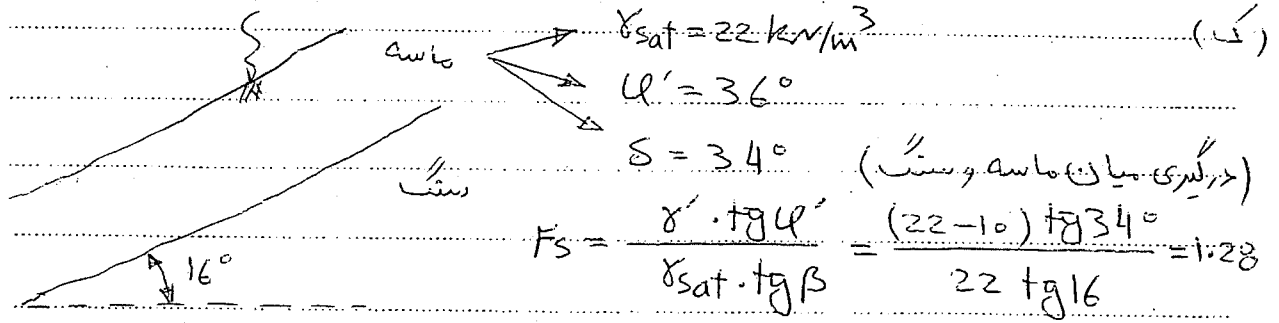 (ک)
γsat = 22 kN/m³
ماسه
φ' = 36°
δ = 34° (درگیری میان ماسه و سنگ)
سنگ
Fs = γ'.tgφ' / γsat.tgβ = (22-10) tg34° / 22 tg16 = 1.28
16°